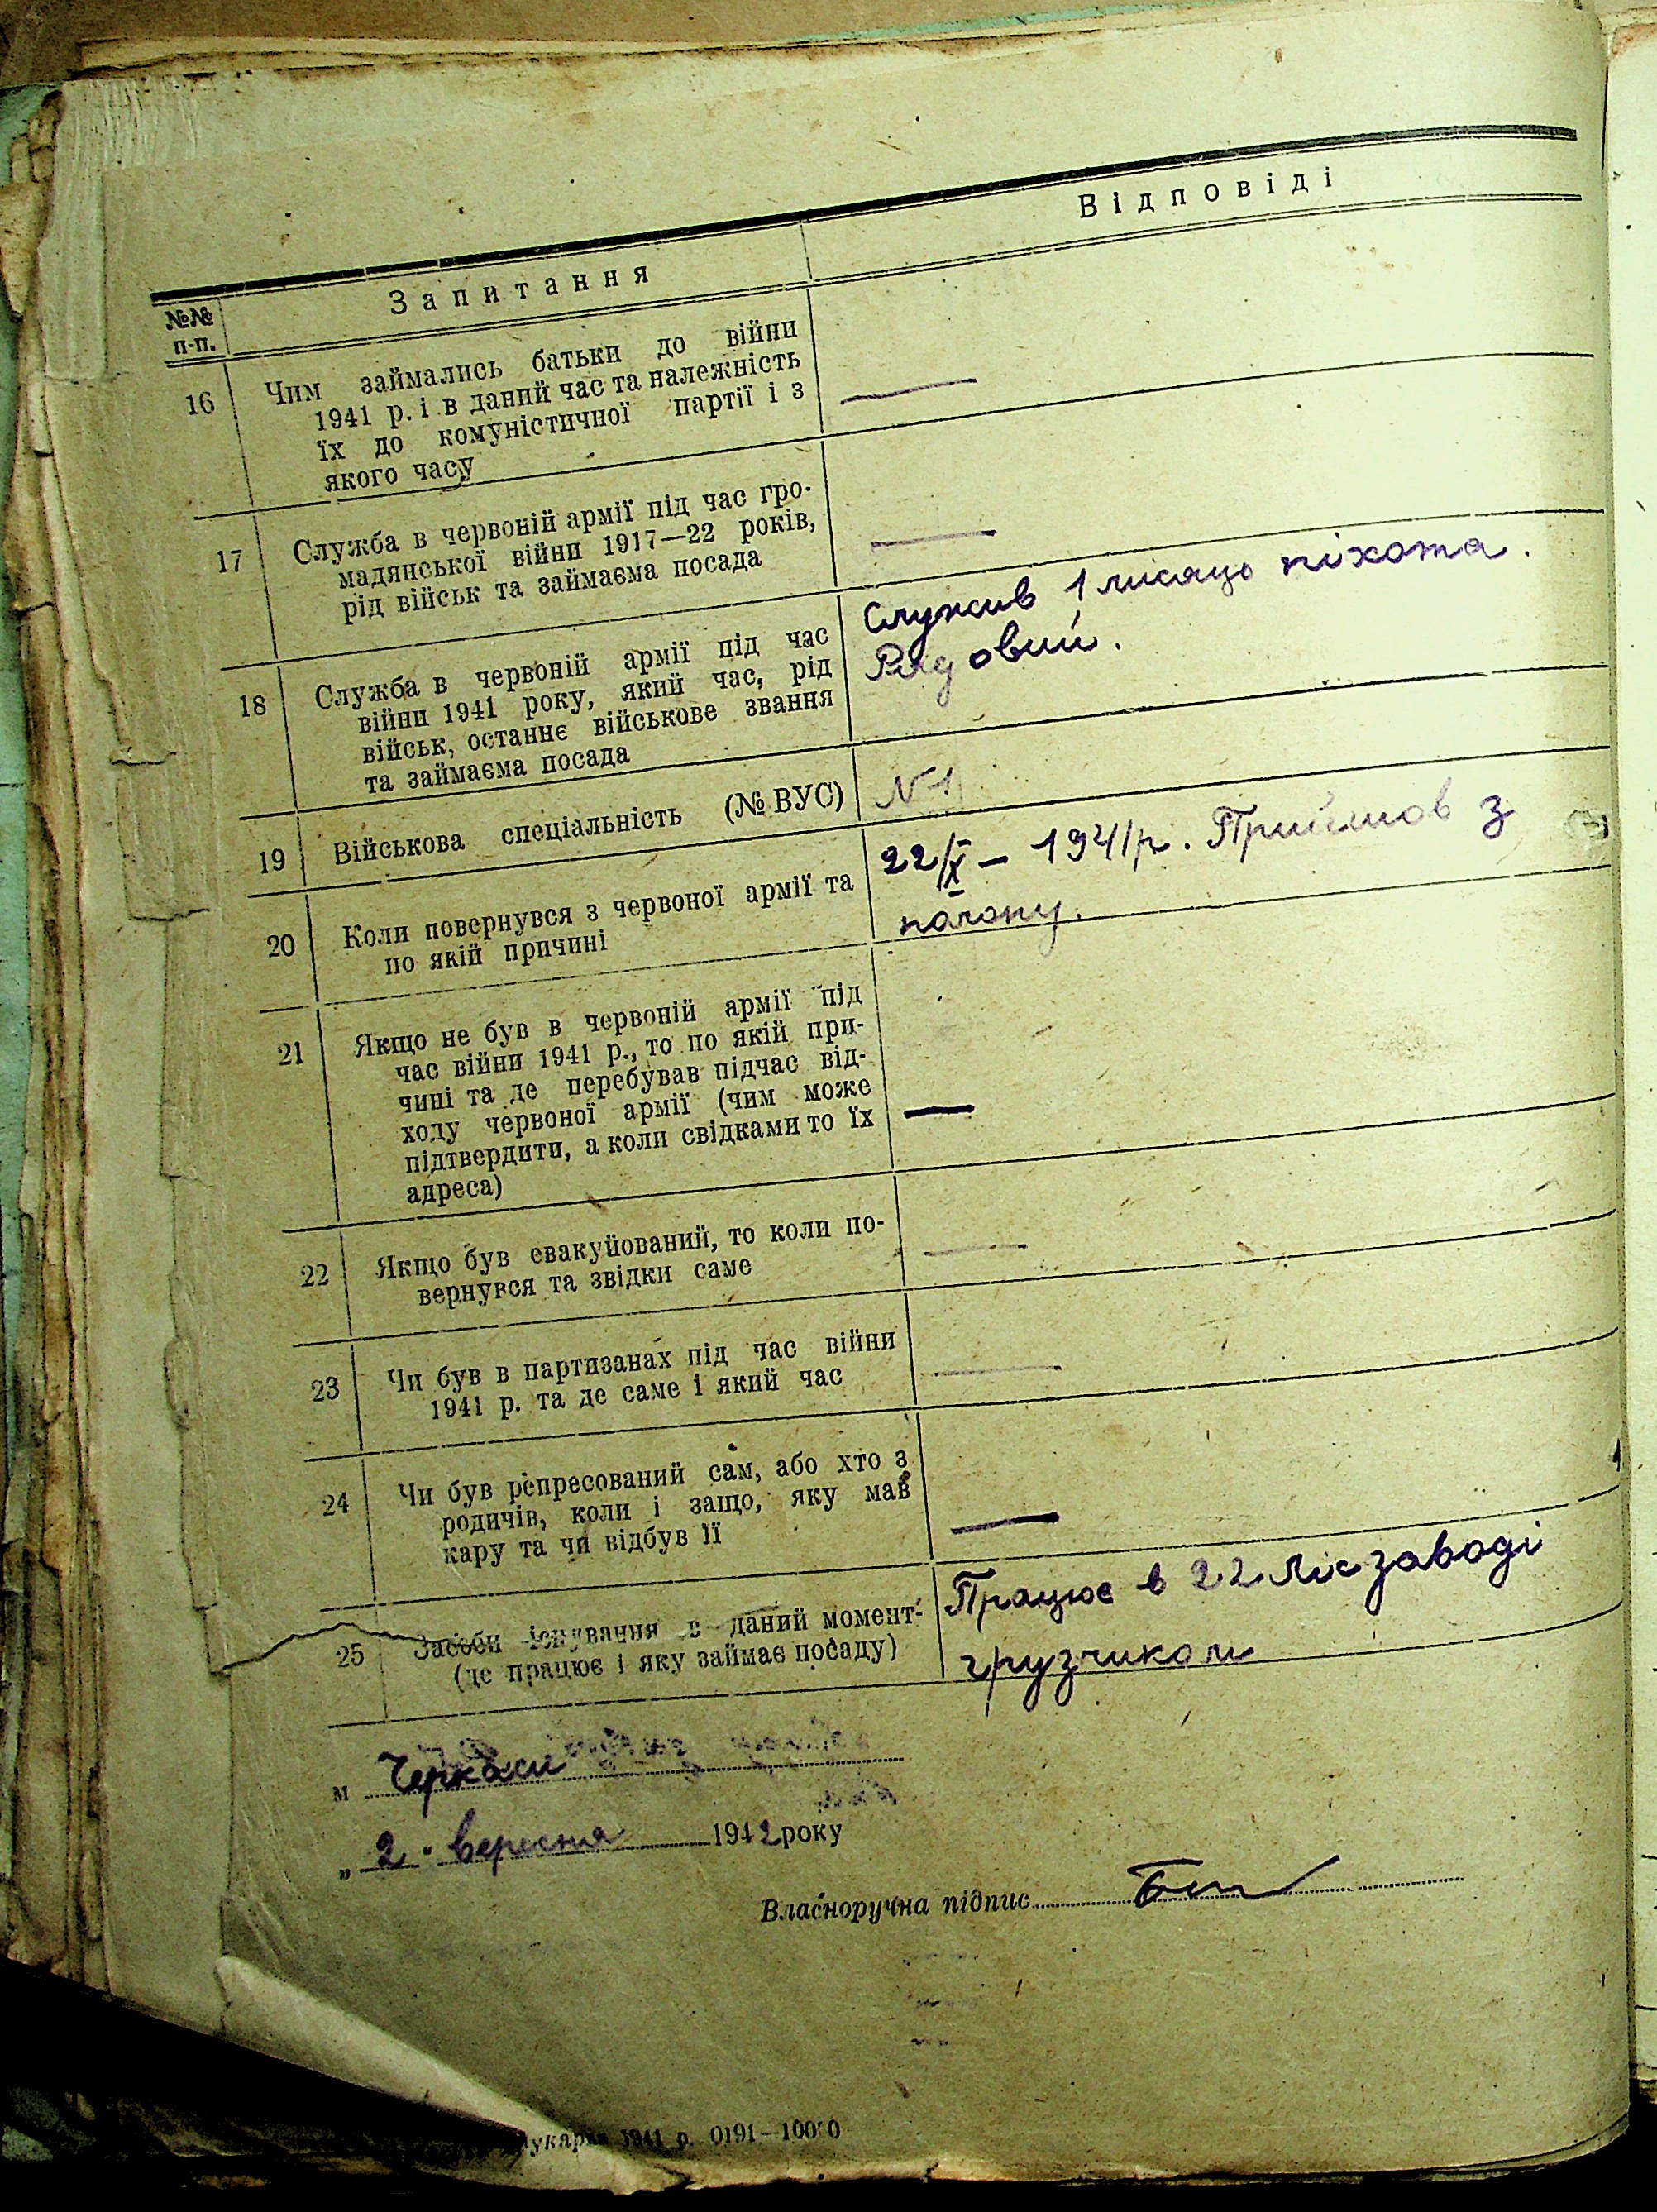 №№ п-п.
Запитання
Відповіді
16
Чим займались батьки до війни
1941 р. і в даний час та належність
їх до комуністичної партії і з
якого часу
—
17
Служба в червоній армії під час гро-
мадянської війни 1917—22 років,
рід військ та займаєма посада
—
18
Служба в червоній армії під час
війни 1941 року, який час, рід
військ, останнє військове звання
та займаєма посада
Служив 1 місяць піхота.
Рядовий.
19
Військова спеціальність (№ ВУС)
N 1
20
Коли повернувся з червоної армії та
по якій причині
22/X – 1941 р. Прийшов з
полону.
21
Якщо не був в червоній армії під
час війни 1941 р., то по якій при-
чині та де перебував підчас від-
ходу червоної армії (чим може
підтвердити, а коли свідками то їх
адреса)
—
22
Якщо був евакуйований, то коли по-
вернувся та звідки саме
—
23
Чи був в партизанах під час війни
1941 р. та де саме і який час
—
24
Чи був репресований сам, або хто з
родичів, коли і защо, яку мав
кару та чи відбув її
—
25
Засоби існування в даний момент-
(де працює і яку займає посаду)
Працює в 22 лісзаводі
грузчиком
м Черкаси
„ 2 " вересня 1942 року
Власноручна підпис
1941 р. 0191—10000